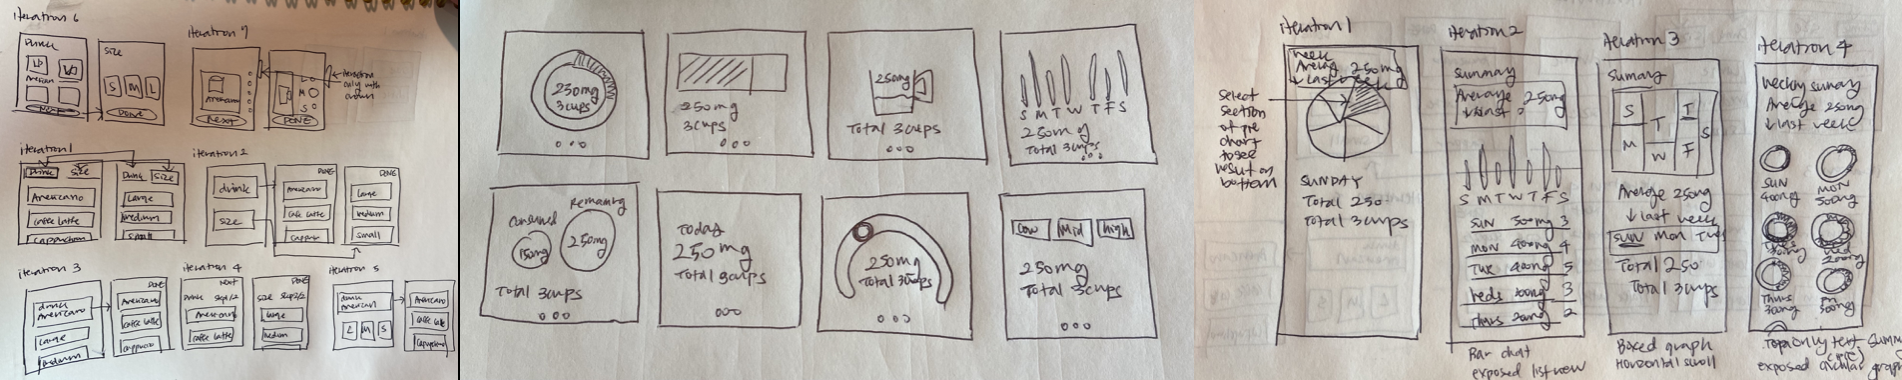 iteration 6
iteration 7
Drink
Size
S M L
Next
Done
Americano
Next
L
M
S
DONE
iteration only with crown
iteration 1
iteration 2
Drink Size
Americano
Caffe latte
Cappuccino
Drink Size
Large
medium
Small
drink
size
DONE
Americano
Cafe latte
DONE
Large
medium
Small
iteration 3
iteration 4
iteration 5
drink
Americano
Large
medium
DONE
Americano
Caffe latte
NEXT
Drink Step 1/2
Americano
Caffe latte
DONE
Size Step 2/2
Large
medium
drink
Americano
L M S
Americano
250mg
3cups
250mg
3cups
250mg
Total 3cups
S M T W T F S
250mg
Total 3cups
Consumed
Remaining
150mg
250mg
Total 3cups
Today
250mg
Total 3cups
250mg
Total 3cups
Low Mid high
250mg
Total 3cups
iteration 1
week
Average 250mg
↓ last week
Select
section
of pie
chart
to see
result on
bottom
SUNDAY
Total 250
Total 3cups
iteration 2
summary
Average 250mg
↓ last
S M T W T F S
SUN 500mg 3
MON 400mg 4
TUE 400mg 5
Weds 300mg 3
Thurs 200mg 2
Bar chat
exposed list view
iteration 3
Sumary
S T T
M W F S
Average 250mg
↓ last week
SUN Mon Tues
Total 250
Total 3cups
Boxed graph
Horizontal scroll
iteration 4
Weekly sumary
Average 250mg
↓ last week
SUN
400mg
MON
500mg
Thurs
300mg
Fri
500mg
Top only text
exposed circular graph